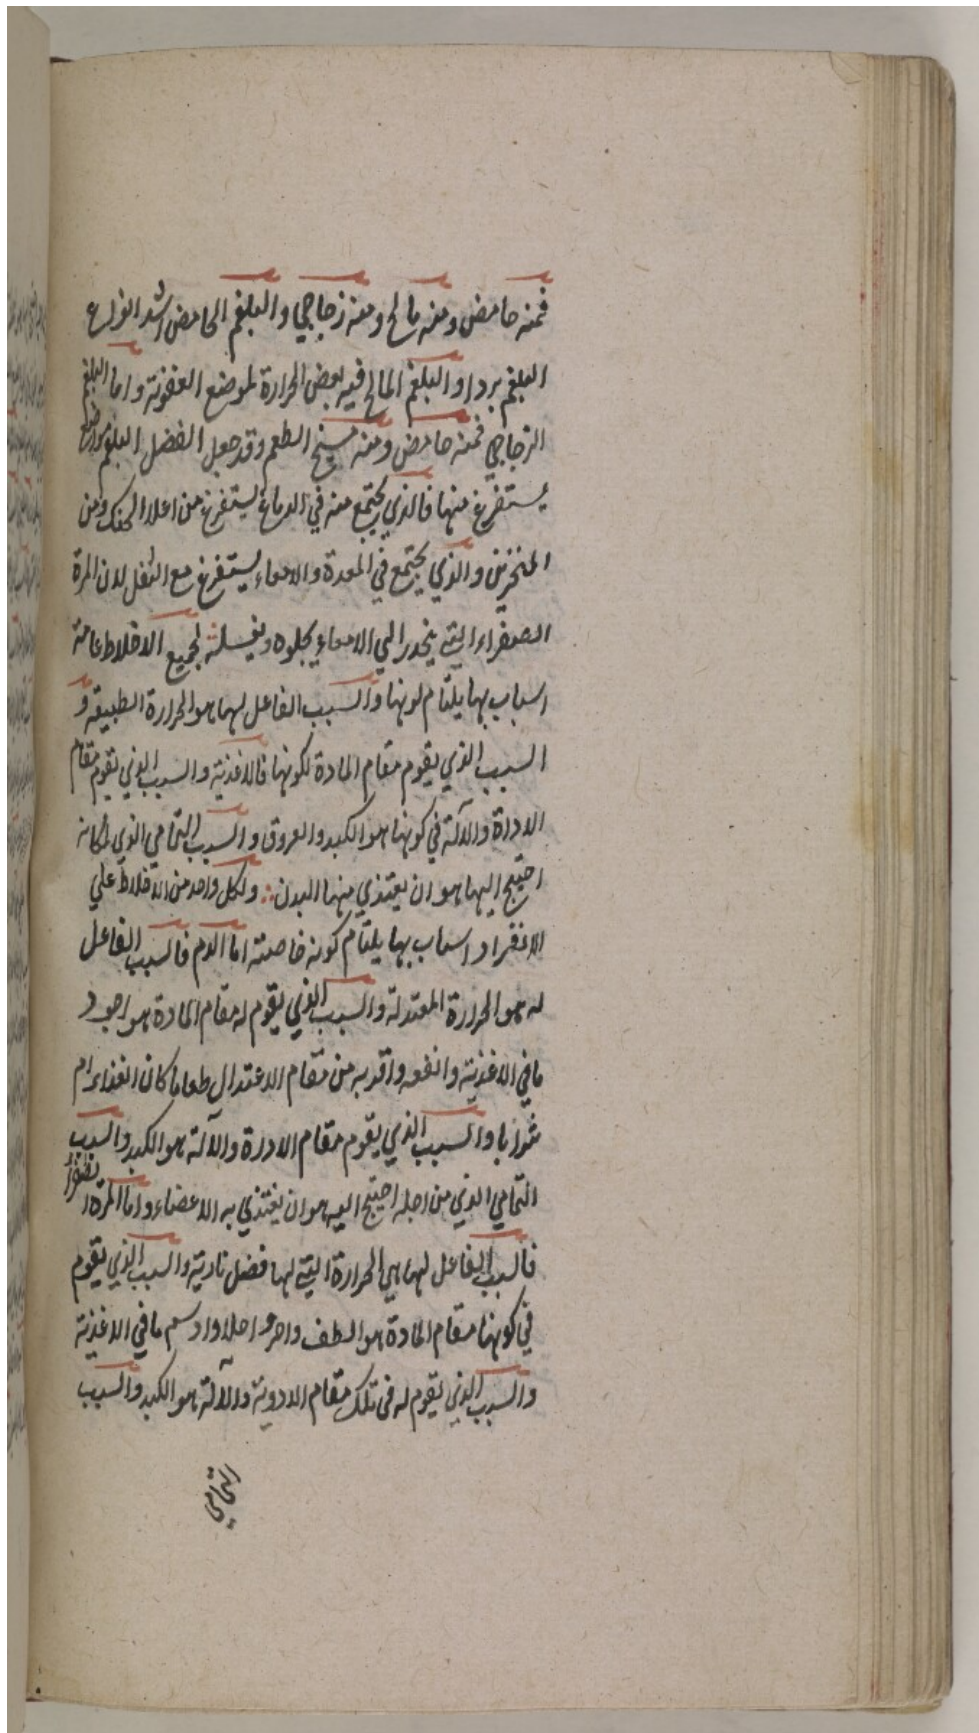 فمنه حامض ومنه مالح ومنه زجاجي والبلغم الحامض اشد انواع
البلغم بردا والبلغم المالح فيه بعض الحرارة لموضع العفونة واما البلغم
الزجاجي فمنه حامض ومنه مسيخ الطعم وقد جعل الفضل البلغم مواضع
يستفرغ منها فالذي يجتمع منه في الدماغ يستفرغ من اعلا الحنك ومن
المنخرين والذي يجتمع في المعدة والامعاء يستفرغ مع الثفل لان المرة
الصفراء التي ينحدر الي الامعاء يجلوه ويغسله لجميع الاخلاط عامة
اسباب بها يلتام لونها والسبب الفاعل لها هو الحرارة الطبيعة و
السبب الذي يقوم مقام المادة لكونها فالاغذية والسبب الذي يقوم مقام
الادرة والآلة في كونها هو الكبد والعروق والسبب التمامي الذي لمكانه
احتيج اليها هو ان يغتذي منها البدن ولكل واحد من الاخلاط علي
الانفراد اسباب بها يلتام كونه خاصته اما الدم فالسبب الفاعل
له هو الحرارة المعتدلة والسبب الذي يقوم له مقام المادة هو اجود
ما في الاغذية وانفعه واقربه من مقام الاعتدال طعاما كان الغذاء ام
شرابا والسبب الذي يقوم مقام الادرة والآلة هو الكبد والسبب
التمامي الذي من اجله احتيج اليه هو ان يغتذي به الاعضاء واما المرة الصفراء
فالسبب الفاعل لها هي الحرارة التي لها فضل نارية والسبب الذي يقوم
في كونها مقام المادة هو الطف واحر واحلا وادسم ما في الاغذية
والسبب الذي يقوم له في تلك مقام الادوية والآلة هو الكبد والسبب
التمامي